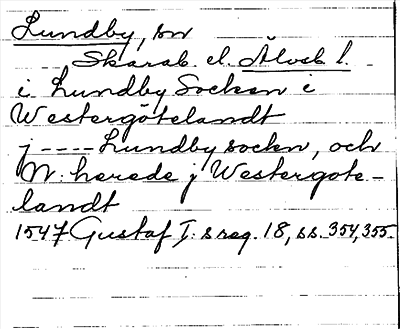 Lundby, sn
Skarab. el. Älvsb. l.
i Lundby Socken i
Westergötelandt
j ---- Lundby sockn, och
W: herede j Westergöte-
landt
1547 Gustaf I: s reg. 18, ss. 354, 355.